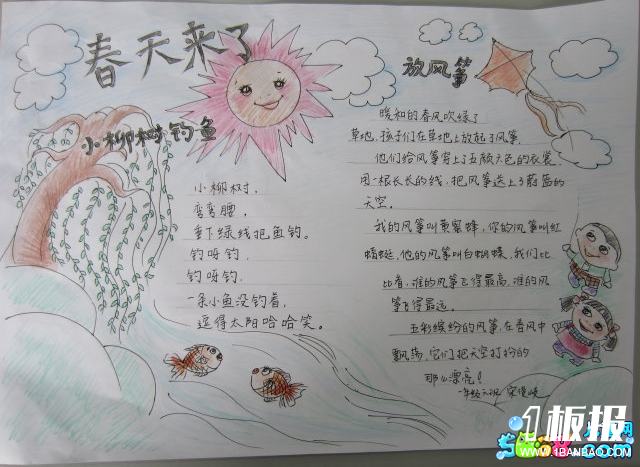 春天来了
小柳树钓鱼
小柳树，
弯弯腰，
垂下绿线把鱼钓。
钓呀钓，
钓呀钓，
一条小鱼没钓着，
逗得太阳哈哈笑。
放风筝
暖和的春风吹绿了
草地，孩子们在草地上放起了风筝。
他们给风筝穿上了五颜六色的衣裳
用一根长长的线，把风筝送上了蔚蓝的
天空。
我的风筝叫黄蜜蜂，你的风筝叫红
蜻蜓，他的风筝叫白蝴蝶，我们比
比看，谁的风筝飞得最高，谁的风
筝飞得最远。
五彩缤纷的风筝，在春风中
飘荡，它们把天空打扮的
那么漂亮！
一年级六班
1板报
WWW.1BANBAO.COM
.com